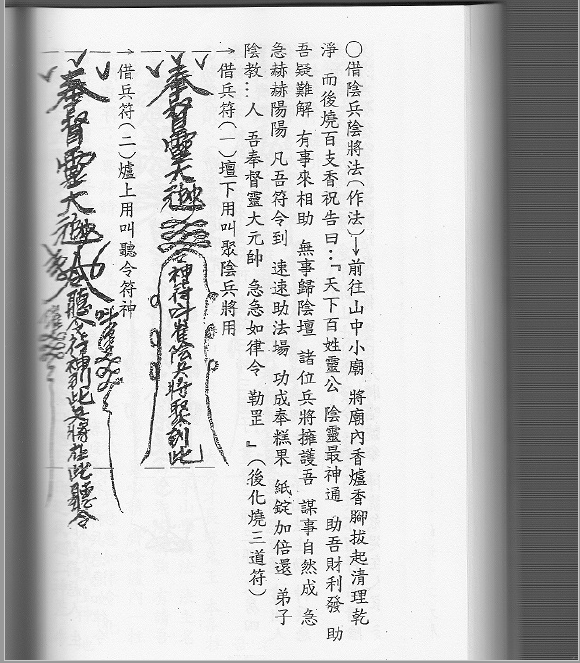 ○借陰兵陰將法(作法)→前往山中小廟 將廟內香爐香腳拔起清理乾
淨 而後燒百支香祝告曰:『天下百姓靈公 陰靈最神通 助吾財利發 助
吾疑難解 有事來相助 無事歸陰壇 諸位兵將擁護吾 謀事自然成 急
急赫赫陽陽 凡吾符令到 速速助法場 功成奉糕果 紙錠加倍還 弟子
陰教…人 吾奉督靈大元帥 急急如律令 勒罡 』(後化燒三道符)
借兵符(一)壇下用叫聚陰兵將用
奉督靈大元帥
神符叫崔陰兵將聚到此
借兵符(二)爐上用叫聽令符神
奉督靈大元帥
聽令符神到此兵將在此聽令